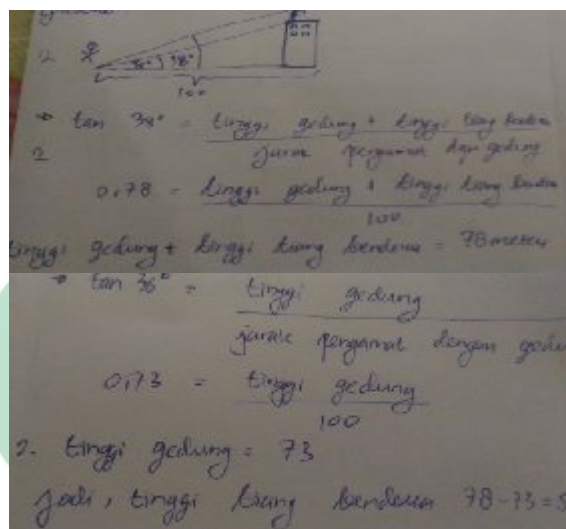 2
38°
100
→ tan 38° = tinggi gedung + tinggi tiang bendera
jarak pengamat dgn gedung
2
0,78 = tinggi gedung + tinggi tiang bendera
100
tinggi gedung + tinggi tiang bendera = 78 meter
→ tan 36° = tinggi gedung
jarak pengamat dengan gedu
0,73 = tinggi gedung
100
2. tinggi gedung = 73
Jadi, tinggi tiang bendera 78-73=5